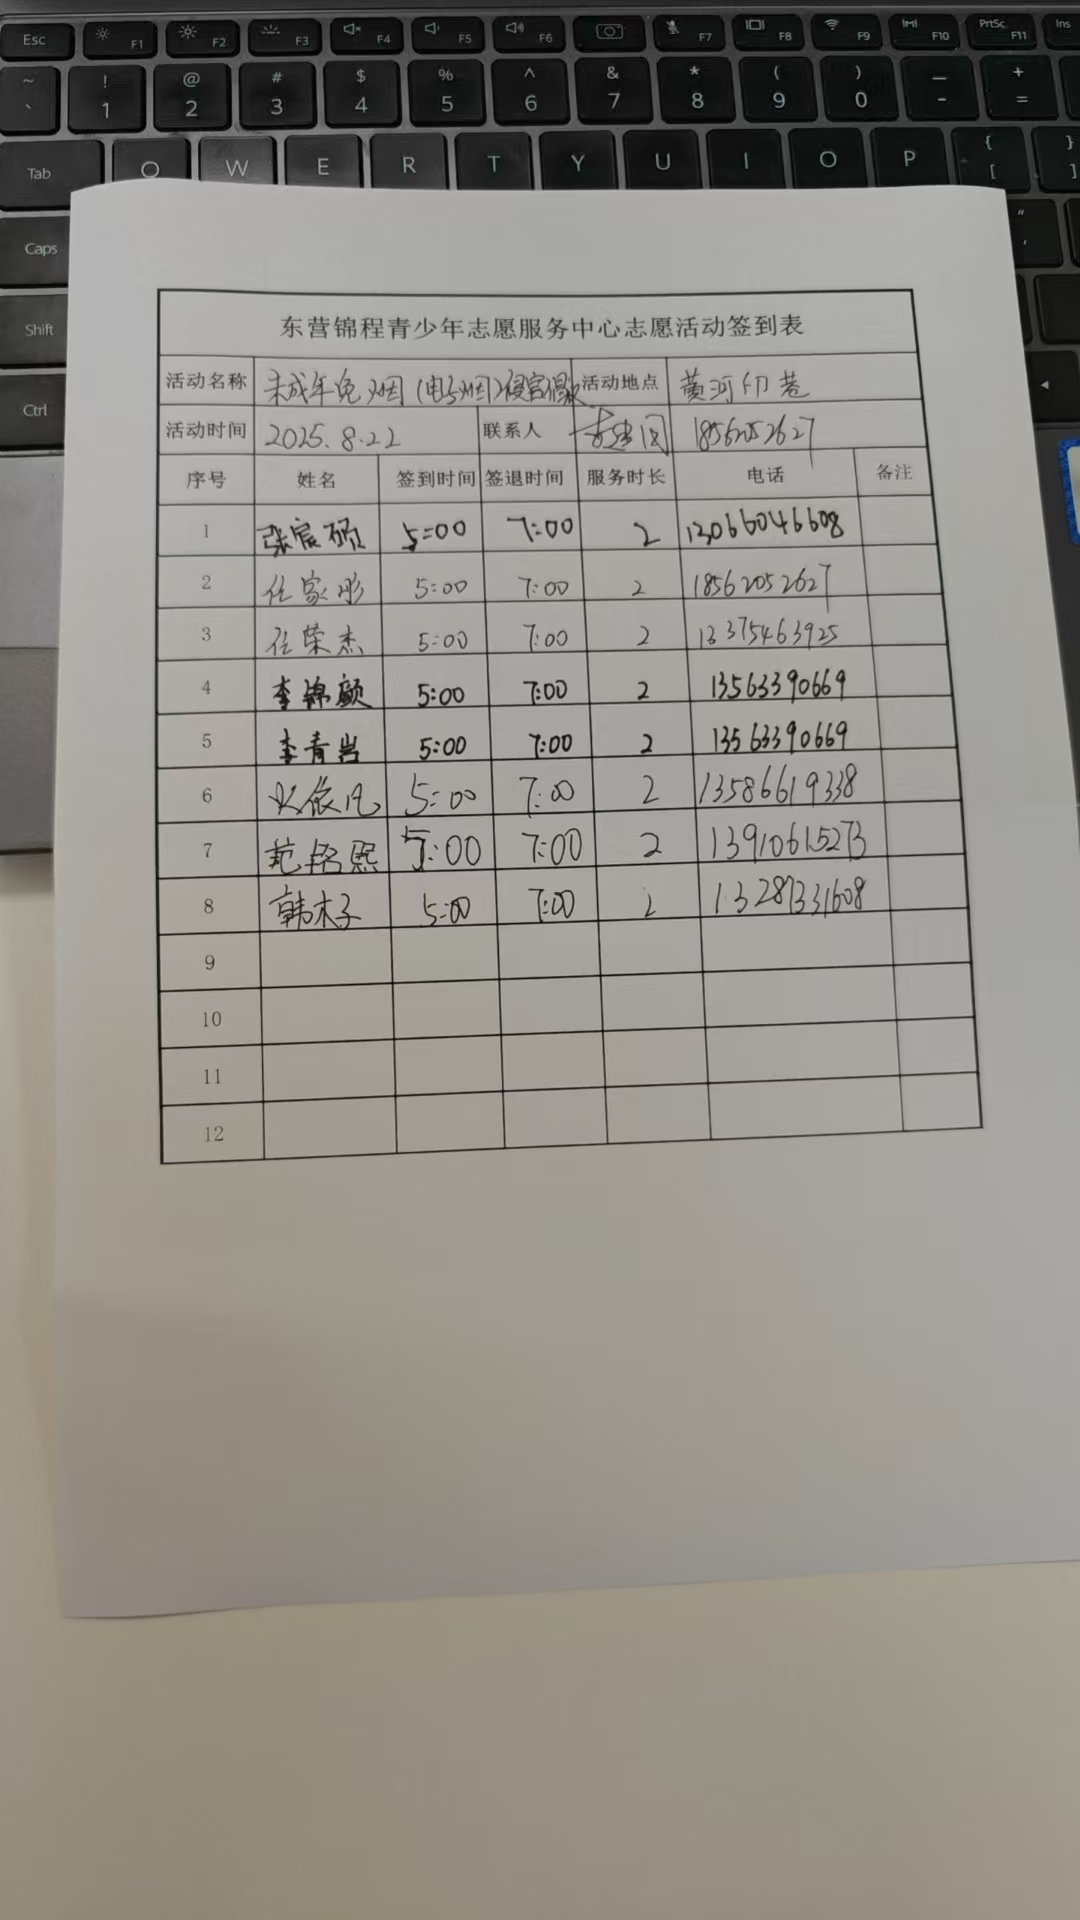 Esc F1 F2 F3 F4 F5 F6 F7 F8 F9 F10 PrtSc F11 Ins
~ ` ! 1 @ 2 # 3 $ 4 % 5 ^ 6 & 7 * 8 ( 9 ) 0 — - + =
Tab Q W E R T Y U I O P { [ } ]
Caps " '
Shift
Ctrl
东营锦程青少年志愿服务中心志愿活动签到表
活动名称 未成年免烟(电子烟)侵害倡 活动地点 黄河印巷
活动时间 2025.8.22 联系人 1856252627
序号 姓名 签到时间 签退时间 服务时长 电话 备注
1 张宸硕 5:00 7:00 2 13066046608
2 任家彤 5:00 7:00 2 18562052627
3 任荣杰 5:00 7:00 2 13375463925
4 李锦颜 5:00 7:00 2 13563390669
5 李青岩 5:00 7:00 2 13563390669
6 依凡 5:00 7:00 2 13586619338
7 范铭熙 5:00 7:00 2 13910615273
8 韩木子 5:00 7:00 2 13287331608
9
10
11
12